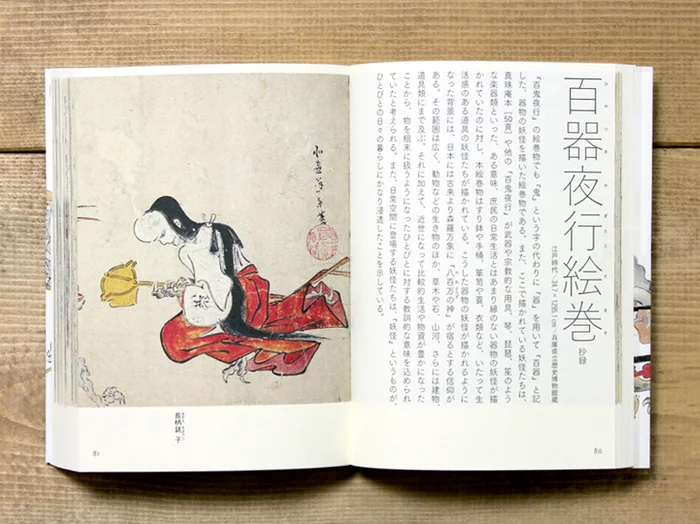 百器夜行絵巻 抄録
江戸時代／34.7×1295.1㎝／兵庫県立歴史博物館蔵
「百鬼夜行」の絵巻物でも「鬼」という字の代わりに「器」を用いて「百器」と記
した、器物の妖怪を描いた絵巻物である。また、ここで描かれている妖怪たちは、
真珠庵本［50頁］や他の「百鬼夜行」が武器や宗教的な用具、琴、琵琶、笙のよう
な楽器類といった、ある意味、庶民の日常生活とはあまり縁のない器物の妖怪が描
かれていたのに対し、本絵巻物はすり鉢や手桶、箪笥や蓑、衣類など、いたって生
活感のある道具の妖怪たちが描かれている。こうした器物の妖怪が描かれるように
なった背景には、日本には古来より森羅万象に“八百万の神”が宿るとする信仰が
ある。その範囲は広く、動物などの生き物のほか、草木や石、山河、さらには建物、
道具類にまで及ぶ。それに加えて、近世になって比較的生活や物資が豊かになった
ことから、物を粗末に扱うようになったひとびとに対する教訓的な意味を込められ
ていたと考えられる。また、日常空間に登場する妖怪たちは、「妖怪」というものが、
ひとびとの日々の暮らしにかなり浸透したことを示している。
80
長柄銚子
81